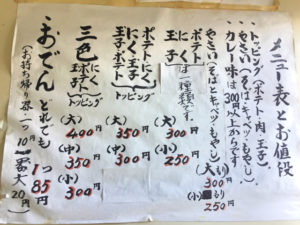 メニュー表とお値段
・トッピング(ポテト・肉・玉子)
カレー味は300円以上からです
・やさい(そばとキャベツ・もやし)
・やさい(そばとキャベツ・もやし)
大もり300円
(小)もり250円
ポテト
玉子
にく
は一種類です。
トッピング
(大)350円
(中)300円
(小)250円
ポテトにく
にく玉子
玉子ポテト
トッピング
(大)350円
(中)300円
三色
にく
玉子
ポテト
トッピング
(大)400円
(中)350円
(小)300円
・おでん どれでも 1つ 85円
(お持ち帰り器一つ10円 一番大20円)